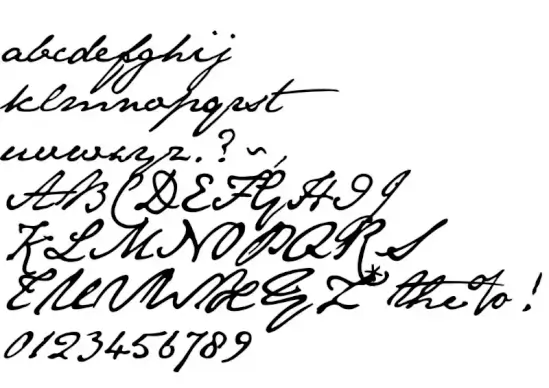 abcdefghij
klmnopqrst
uvwxyz.?~,
ABCDEFGHIJ
KLMNOPQRS
TUVWXYZ* the % !
0123456789